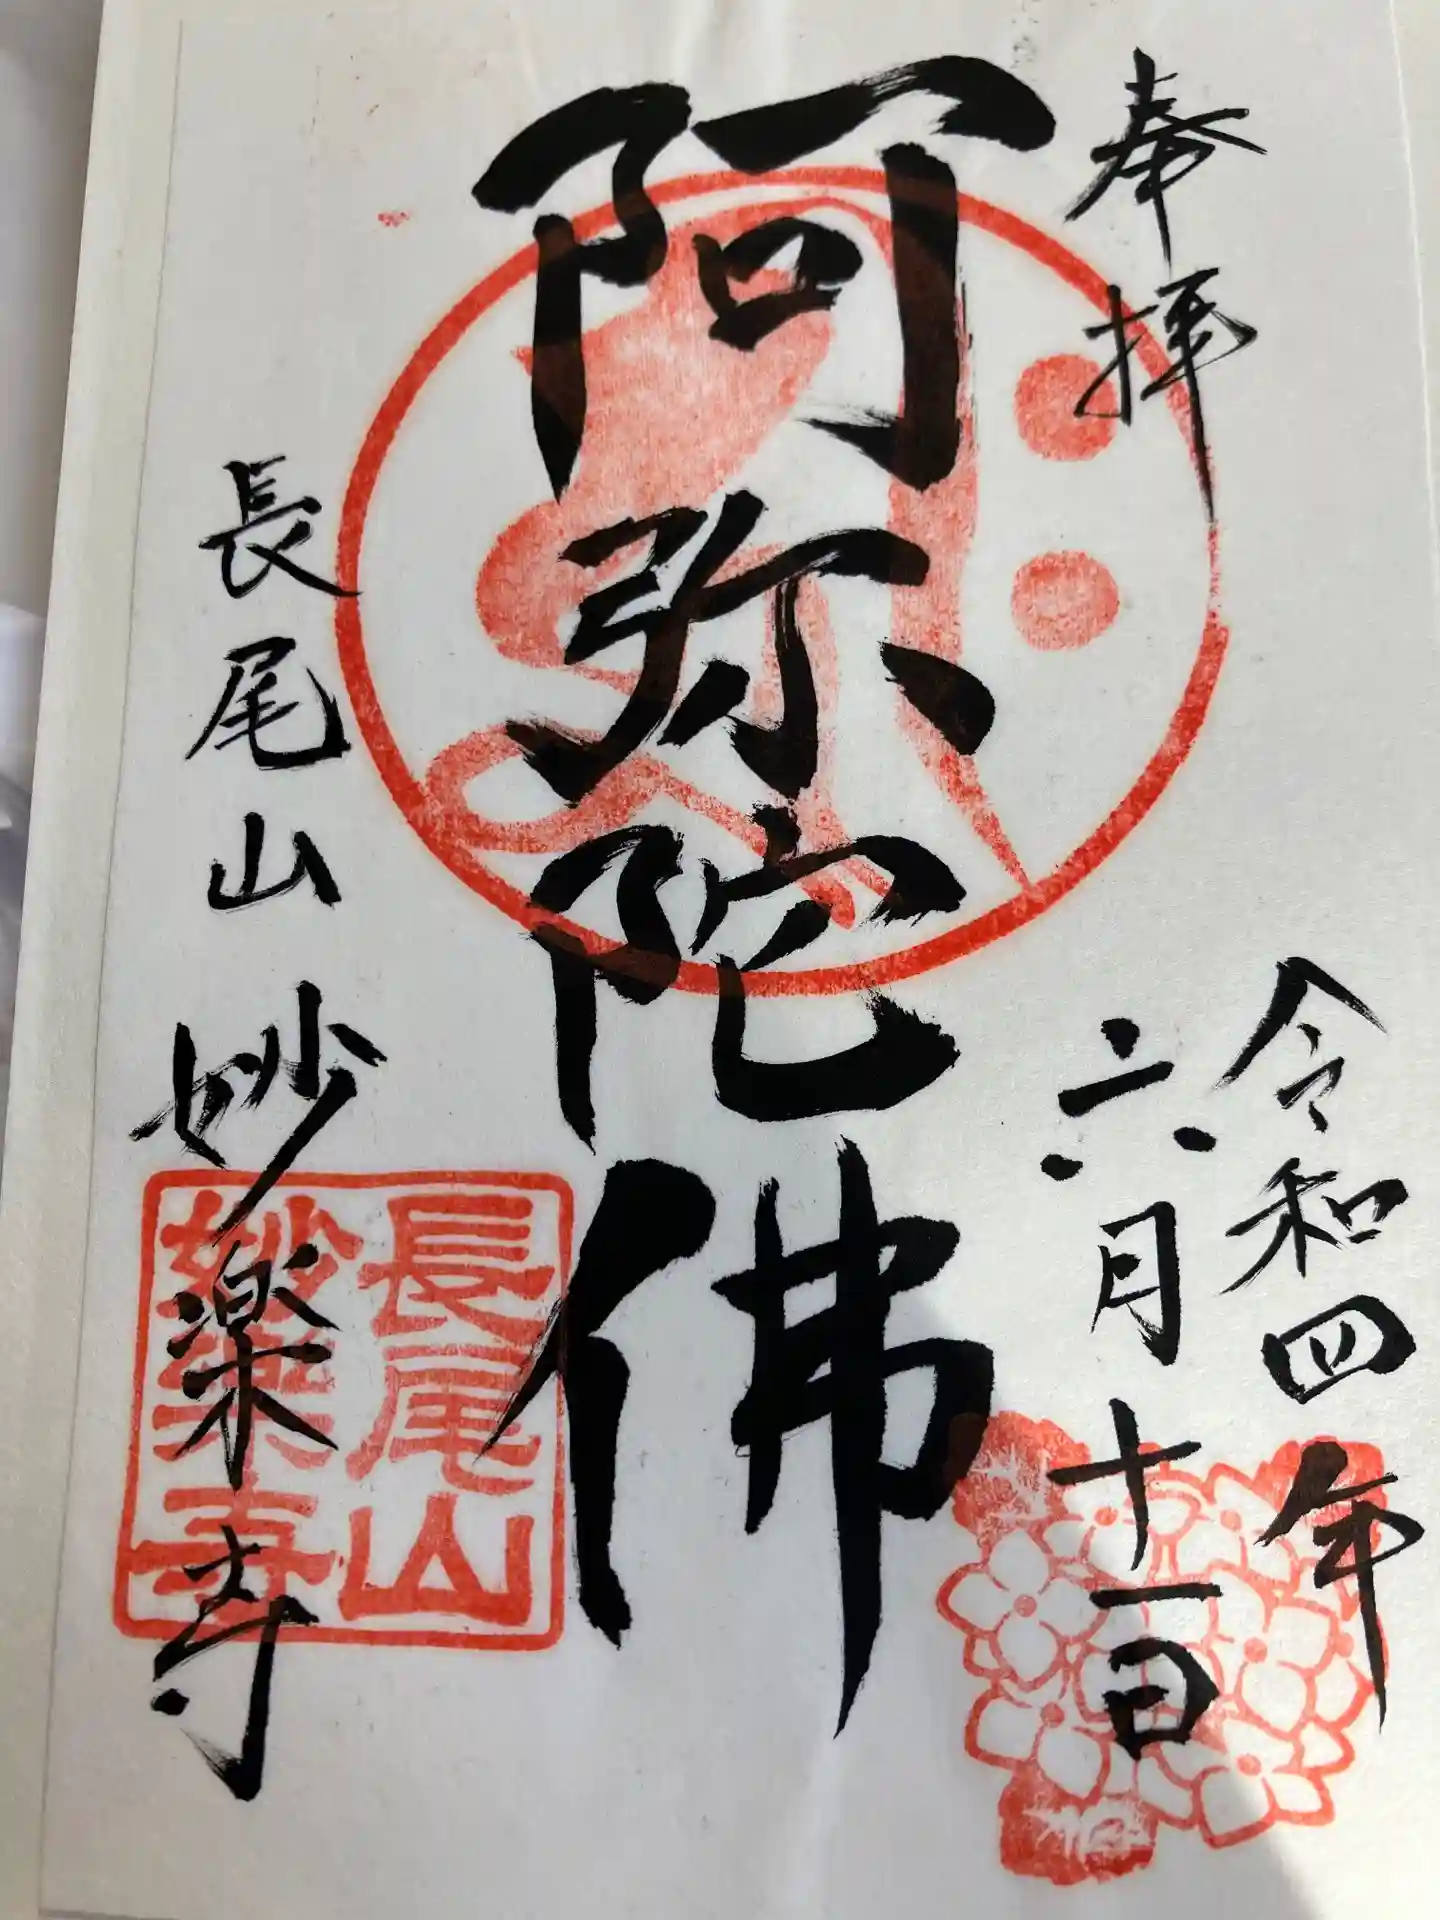 奉拝
令和四年
六月十一日
阿弥陀佛
長尾山 妙楽寺
長尾山
妙楽寺